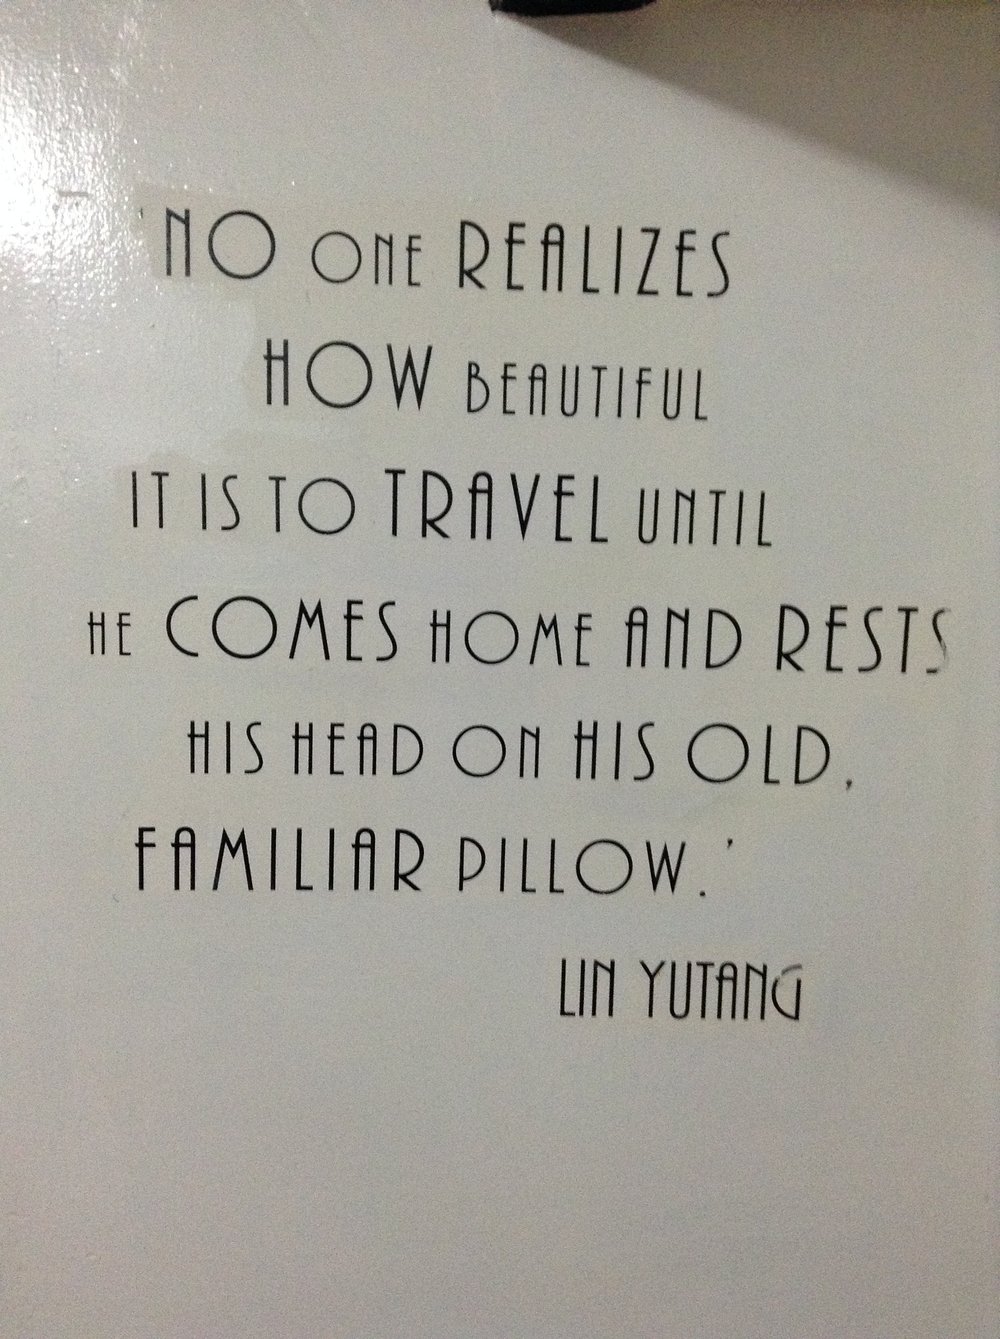 'NO ONE REALIZES
HOW BEAUTIFUL
IT IS TO TRAVEL UNTIL
HE COMES HOME AND RESTS
HIS HEAD ON HIS OLD,
FAMILIAR PILLOW.'
LIN YUTANG